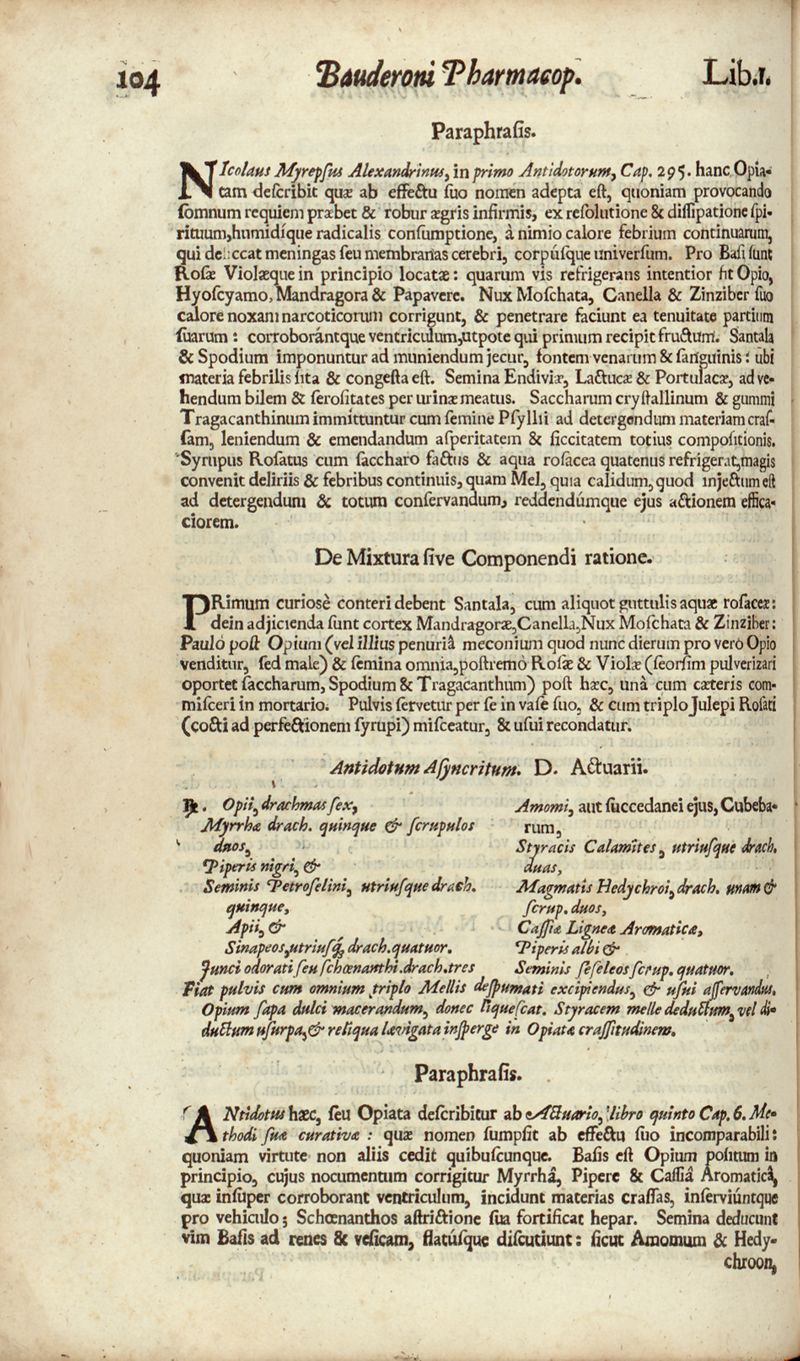 104 Bauderoni Pharmacop. Lib.1.
Paraphrasis.
NIcolaus Myrepsus Alexandrinus, in primo Antidotorum, Cap. 295. hanc Opia-
tam describit quæ ab effectu suo nomen adepta est, quoniam provocando
somnum requiem præbet & robur ægris infirmis, ex resolutione & dissipatione spi-
rituum, humidíque radicalis consumptione, à nimio calore febrium continuarum,
qui desiccat meningas seu membranas cerebri, corpúsque universum. Pro Basi sunt
Rosæ Violæque in principio locatæ: quarum vis refrigerans intentior fit Opio,
Hyoscyamo, Mandragora & Papavere. Nux Moschata, Canella & Zinziber suo
calore noxam narcoticorum corrigunt, & penetrare faciunt ea tenuitate partium
suarum: corroborántque ventriculum, utpote qui primum recipit fructum. Santala
& Spodium imponuntur ad muniendum jecur, fontem venarum & sanguinis: ubi
materia febrilis sita & congesta est. Semina Endiviæ, Lactucæ & Portulacæ, ad ve-
hendum bilem & serositates per urinæ meatus. Saccharum crystallinum & gummi
Tragacanthinum immittuntur cum semine Psyllii ad detergendum materiam cras-
sam, leniendum & emendandum asperitatem & siccitatem totius compositionis.
Syrupus Rosatus cum saccharo factus & aqua rosacea quatenus refrigerat, magis
convenit deliriis & febribus continuis, quam Mel, quia calidum, quod injectum est
ad detergendum & totum conservandum, reddendúmque ejus actionem effica-
ciorem.
De Mixtura sive Componendi ratione.
PRimum curiosè conteri debent Santala, cum aliquot guttulis aquæ rosaceæ:
dein adjicienda sunt cortex Mandragoræ, Canella, Nux Moschata & Zinziber:
Pauló post Opium (vel illius penuriâ meconium quod nunc dierum pro veró Opio
venditur, sed male) & semina omnia, postremó Rosæ & Violæ (seorsim pulverizari
oportet saccharum, Spodium & Tragacanthum) post hæc, unâ cum cæteris com-
misceri in mortario. Pulvis servetur per se in vase suo, & cum triplo Julepi Rosati
(cocti ad perfectionem syrupi) misceatur, & usui recondatur.
Antidotum Asyncritum. D. Actuarii.
℞. Opii, drachmas sex,
Myrrhæ drach. quinque & scrupulos
duos,
Piperis nigri, &
Seminis Petroselini, utriusque drach.
quinque,
Apii, &
Sinapeos, utriusq; drach. quatuor.
Junci odorati seu schœnanthi. drach. tres
Amomi, aut succedanei ejus, Cubeba-
rum,
Styracis Calamites, utriusque drach.
duas,
Magmatis Hedychroi, drach. unam &
scrup. duos,
Cassiæ Ligneæ Aromaticæ,
Piperis albi &
Seminis seseleos scrup. quatuor.
Fiat pulvis cum omnium triplo Mellis despumati excipiendus, & usui asservandus.
Opium sapa dulci macerandum, donec liquescat. Styracem melle deductum, vel di-
ductum usurpa, & reliqua lævigata insperge in Opiatæ crassitudinem.
Paraphrasis.
ANtidotus hæc, seu Opiata describitur ab Actuario, libro quinto Cap. 6. Me-
thodi suæ curativæ: quæ nomen sumpsit ab effectu suo incomparabili:
quoniam virtute non aliis cedit quibuscunque. Basis est Opium positum in
principio, cujus nocumentum corrigitur Myrrhâ, Pipere & Cassiâ Aromaticâ,
quæ insuper corroborant ventriculum, incidunt materias crassas, inserviúntque
pro vehiculo; Schœnanthos astrictione sua fortificat hepar. Semina deducunt
vim Basis ad renes & vesicam, flatúsque discutiunt: sicut Amomum & Hedy-
chroon,